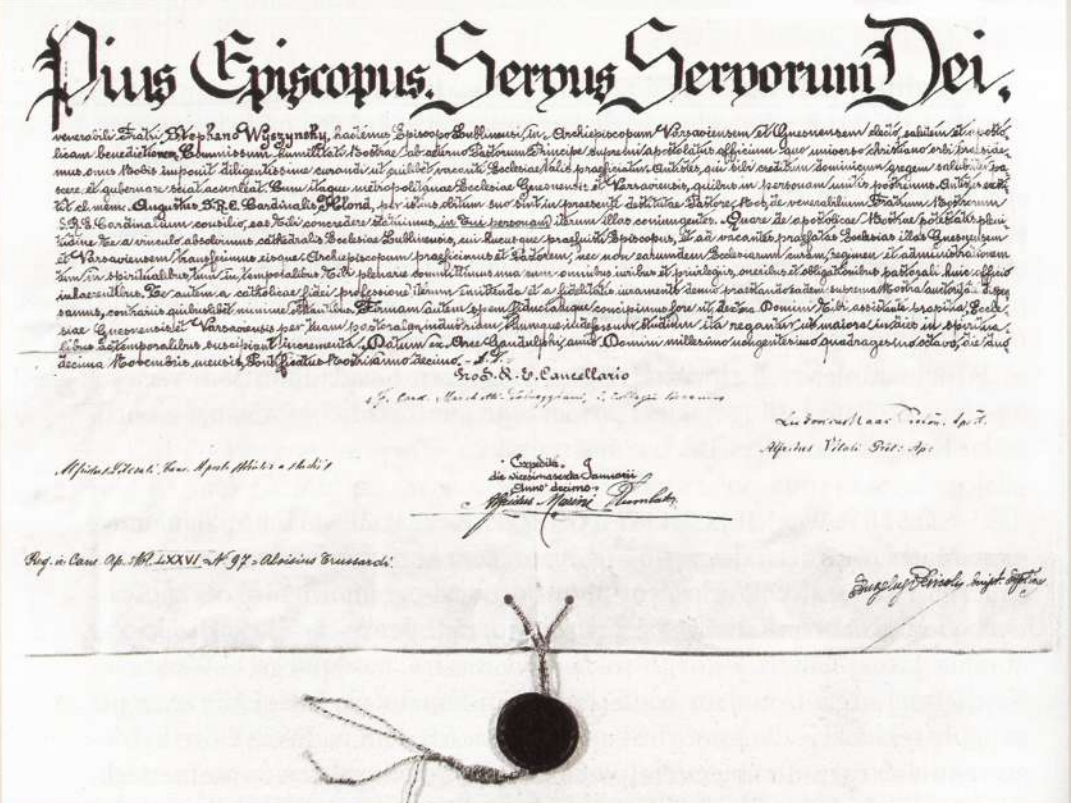 Pius Episcopus. Servus Servorum Dei.
venerabili Fratri Stephano Wyszynsky, hactenus Episcopo Lublinensi, in Archiepiscopum Varsaviensem et Gnesnensem electo, salutem et aposto-
licam benedictionem. Commissum humilitati Nostrae ab aeterno Pastorum Principe supremi apostolatus officium quo universo christiano orbi praeside-
mus, onus Nobis imponit diligentissime curandi ut quilibet vacanti Ecclesiae talis praeficiatur Antistes, qui sibi creditum dominicum gregem salubriter pa-
scere et gubernare sciat ac valeat. Cum itaque metropolitanae Ecclesiae Gnesnensis et Varsaviensis, quibus in personam unitis postremus Antistes exti-
tit cl. mem. Augustus S.R.E. Cardinalis Hlond, per istius obitum suo sint in praesenti destitutae Pastore, Nos, de venerabilium Fratrum Nostrorum
S.R.E. Cardinalium consilio, eas tibi concredere statuimus, in tui personam iterum illas coniungentes. Quare de apostolicae Nostrae potestatis pleni-
tudine te a vinculo absolvimus cathedralis Ecclesiae Lublinensis, cui hucusque praefuisti Episcopus, et ad vacantes praefatas Ecclesias illas Gnesnensem
et Varsaviensem transferimus eisque Archiepiscopum praeficimus et Pastorem, nec non earumdem Ecclesiarum curam, regimen et administrationem
tum in spiritualibus, tum in temporalibus Tibi plenarie committimus una cum omnibus iuribus et privilegiis, oneribus et obligationibus pastorali huic officio
inhaerentibus. Te autem a catholicae fidei professione iterum emittenda et a fidelitatis iuramento denuo praestando eadem suprema Nostra auctoritate dispen-
samus, contrariis quibuslibet minime obstantibus. Firmam autem spem fiduciamque concipimus fore ut, dextera Domini Tibi assistente propitia, Eccle-
siae Gnesnensis et Varsaviensis per tuam pastoralem industriam tuumque indefessum studium ita regantur ut maiora in dies in spiritua-
libus et temporalibus suscipiant incrementa. Datum ex Arce Gandulphi, anno Domini millesimo nongentesimo quadragesimo octavo, die duo-
decima Novembris mensis, Pontificatus Nostri anno decimo.
Pro S. R. E. Cancellario
Card. Marchetti Selvaggiani,
Ludovicus Kaas Proton. Apost.
Alfridus Vitali Prot. Ap.
Expedita
die vicesimasexta Januarii
Anno decimo
Alfridus Marini Plumbator
Reg. in Canc. Ap. Vol. LXXVI N. 97. Aloisius Trussardi.